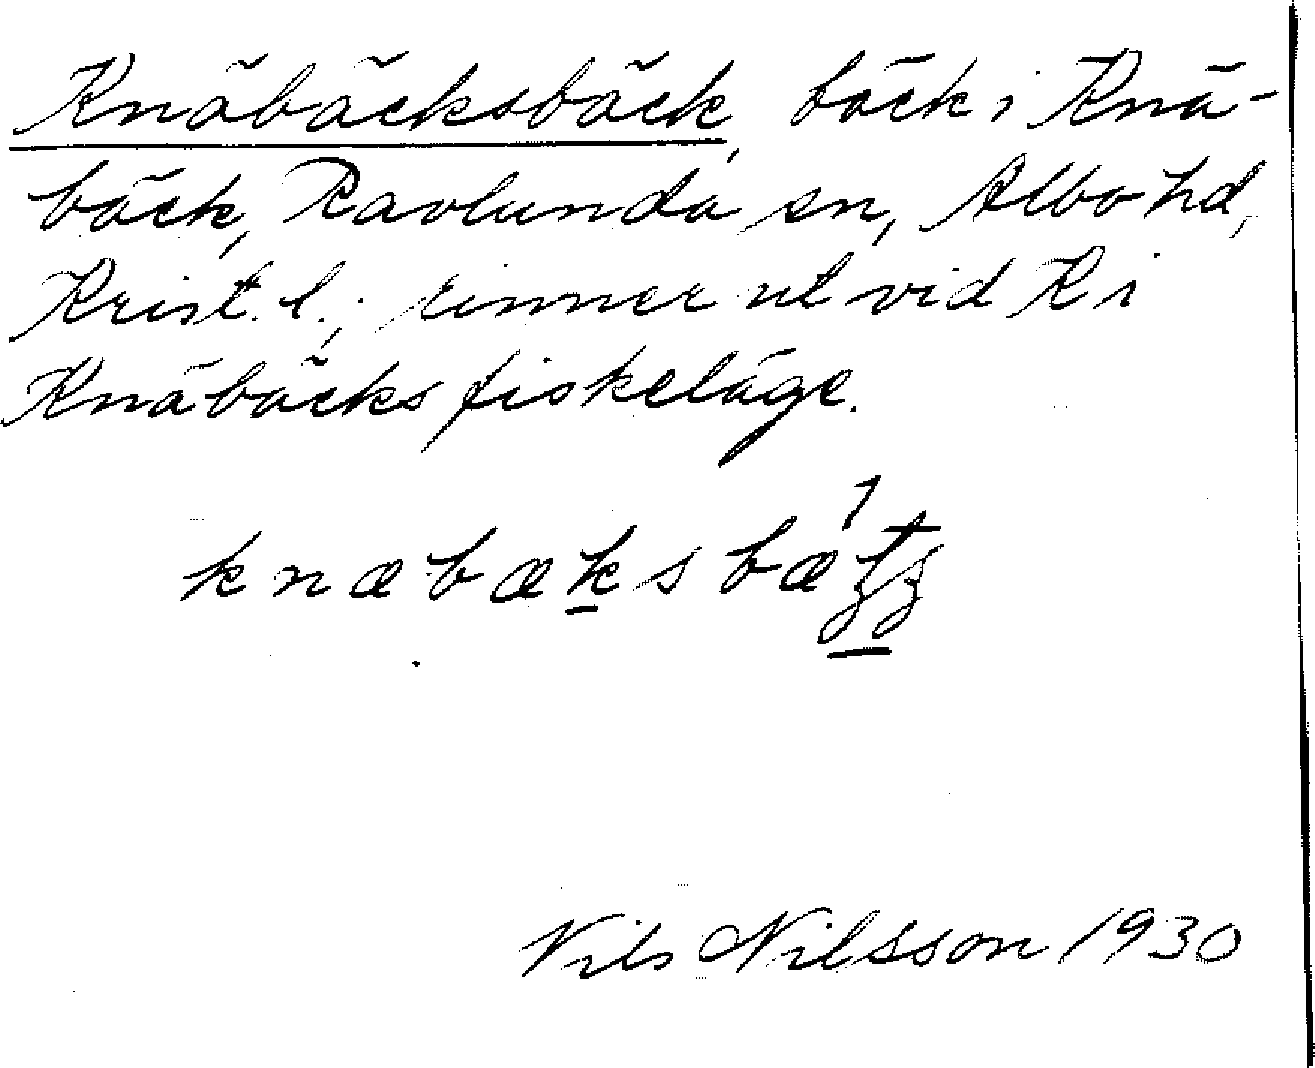 Knäbäcksbäck, bäck i Knä-
bäck, Ravlunda sn, Albo hd,
Krist. l.; rinner ut vid K i
Knäbäcks fiskeläge.
knæbæksbæ
Nils Nilsson 1930